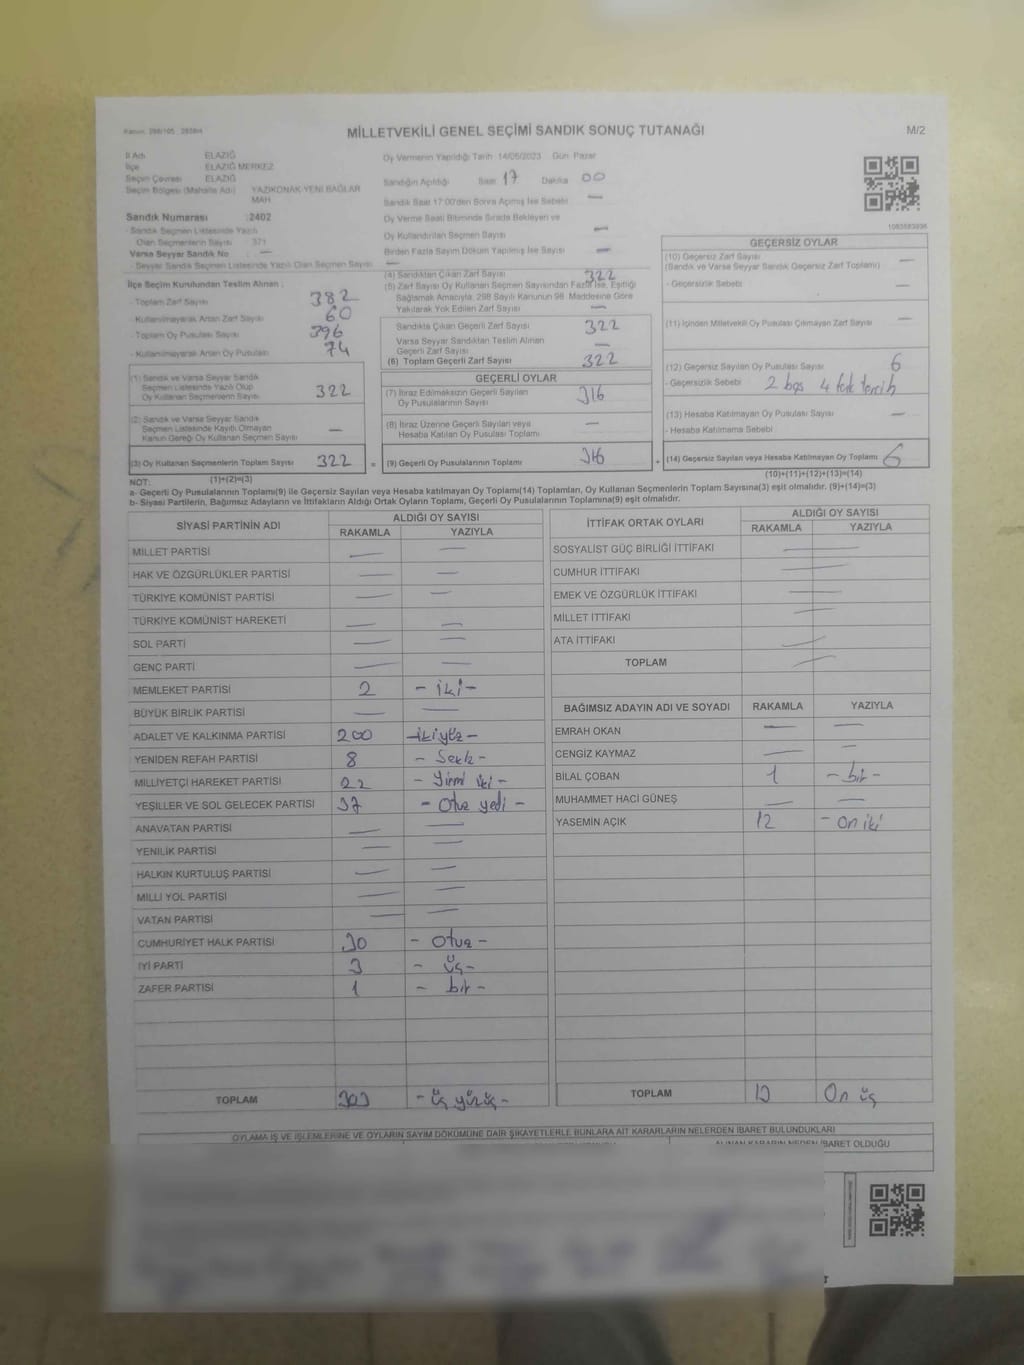 Kanun: 298/105 , 2839/4
MİLLETVEKİLİ GENEL SEÇİMİ SANDIK SONUÇ TUTANAĞI
M/2
İl Adı ELAZIĞ
İlçe ELAZIĞ MERKEZ
Seçim Çevresi ELAZIĞ
Seçim Bölgesi (Mahalle Adı) YAZIKONAK-YENİ BAĞLAR MAH
Sandık Numarası :2402
- Sandık Seçmen Listesinde Yazılı
Olan Seçmenlerin Sayısı 371
Varsa Seyyar Sandık No —
- Seyyar Sandık Seçmen Listesinde Yazılı Olan Seçmen Sayısı —
İlçe Seçim Kurulundan Teslim Alınan :
- Toplam Zarf Sayısı 382
- Kullanılmayarak Artan Zarf Sayısı 60
- Toplam Oy Pusulası Sayısı 396
- Kullanılmayarak Artan Oy Pusulası 74
(1) Sandık ve Varsa Seyyar Sandık
Seçmen Listesinde Yazılı Olup
Oy Kullanan Seçmenlerin Sayısı 322
(2) Sandık ve Varsa Seyyar Sandık
Seçmen Listesinde Kayıtlı Olmayan
Kanun Gereği Oy Kullanan Seçmen Sayısı —
(3) Oy Kullanan Seçmenlerin Toplam Sayısı 322
(1)+(2)=(3)
Oy Vermenin Yapıldığı Tarih 14/05/2023 Gün: Pazar
Sandığın Açıldığı Saat 17 Dakika 00
Sandık Saat 17:00'den Sonra Açılmış İse Sebebi —
Oy Verme Saati Bitiminde Sırada Bekleyen ve
Oy Kullandırılan Seçmen Sayısı —
Birden Fazla Sayım Döküm Yapılmış İse Sayısı —
(4) Sandıktan Çıkan Zarf Sayısı 322
(5) Zarf Sayısı Oy Kullanan Seçmen Sayısından Fazla İse, Eşitliği
Sağlamak Amacıyla, 298 Sayılı Kanunun 98. Maddesine Göre
Yakılarak Yok Edilen Zarf Sayısı —
Sandıkta Çıkan Geçerli Zarf Sayısı 322
Varsa Seyyar Sandıktan Teslim Alınan
Geçerli Zarf Sayısı —
(6) Toplam Geçerli Zarf Sayısı 322
GEÇERLİ OYLAR
(7) İtiraz Edilmeksizin Geçerli Sayılan
Oy Pusulalarının Sayısı 316
(8) İtiraz Üzerine Geçerli Sayılan veya
Hesaba Katılan Oy Pusulası Toplamı —
= (9) Geçerli Oy Pusulalarının Toplamı 316
GEÇERSİZ OYLAR
(10) Geçersiz Zarf Sayısı
(Sandık ve Varsa Seyyar Sandık Geçersiz Zarf Toplamı) —
- Geçersizlik Sebebi: —
(11) İçinden Milletvekili Oy Pusulası Çıkmayan Zarf Sayısı —
(12) Geçersiz Sayılan Oy Pusulası Sayısı 6
- Geçersizlik Sebebi 2 boş 4 fark tercih
(13) Hesaba Katılmayan Oy Pusulası Sayısı —
- Hesaba Katılmama Sebebi
(14) Geçersiz Sayılan veya Hesaba Katılmayan Oy Toplamı 6
(10)+(11)+(12)+(13)=(14)
NOT:
a- Geçerli Oy Pusulalarının Toplamı(9) ile Geçersiz Sayılan veya Hesaba katılmayan Oy Toplamı(14) Toplamları, Oy Kullanan Seçmenlerin Toplam Sayısına(3) eşit olmalıdır. (9)+(14)=(3)
b- Siyasi Partilerin, Bağımsız Adayların ve İttifakların Aldığı Ortak Oyların Toplamı, Geçerli Oy Pusulalarının Toplamına(9) eşit olmalıdır.
SİYASİ PARTİNİN ADI ALDIĞI OY SAYISI
RAKAMLA YAZIYLA
MİLLET PARTİSİ — —
HAK VE ÖZGÜRLÜKLER PARTİSİ — —
TÜRKİYE KOMÜNİST PARTİSİ — —
TÜRKİYE KOMÜNİST HAREKETİ — —
SOL PARTİ — —
GENÇ PARTİ — —
MEMLEKET PARTİSİ 2 - iki -
BÜYÜK BİRLİK PARTİSİ — —
ADALET VE KALKINMA PARTİSİ 200 - ikiyüz -
YENİDEN REFAH PARTİSİ 8 - Sekiz -
MİLLİYETÇİ HAREKET PARTİSİ 22 - Yirmi iki -
YEŞİLLER VE SOL GELECEK PARTİSİ 37 - Otuz yedi -
ANAVATAN PARTİSİ — —
YENİLİK PARTİSİ — —
HALKIN KURTULUŞ PARTİSİ — —
MİLLİ YOL PARTİSİ — —
VATAN PARTİSİ — —
CUMHURİYET HALK PARTİSİ 30 - otuz -
İYİ PARTİ 3 - üç -
ZAFER PARTİSİ 1 - bir -
TOPLAM 303 - üç yüz üç -
İTTİFAK ORTAK OYLARI ALDIĞI OY SAYISI
RAKAMLA YAZIYLA
SOSYALİST GÜÇ BİRLİĞİ İTTİFAKI —
CUMHUR İTTİFAKI —
EMEK VE ÖZGÜRLÜK İTTİFAKI —
MİLLET İTTİFAKI —
ATA İTTİFAKI —
TOPLAM —
BAĞIMSIZ ADAYIN ADI VE SOYADI RAKAMLA YAZIYLA
EMRAH OKAN — —
CENGİZ KAYMAZ — —
BİLAL ÇOBAN 1 - bir -
MUHAMMET HACİ GÜNEŞ — —
YASEMİN AÇIK 12 - on iki
TOPLAM 13 On üç
OYLAMA İŞ VE İŞLEMLERİNE VE OYLARIN SAYIM DÖKÜMÜNE DAİR ŞİKAYETLERLE BUNLARA AİT KARARLARIN NELERDEN İBARET BULUNDUKLARI
ALINAN KARARIN NEDEN İBARET OLDUĞU